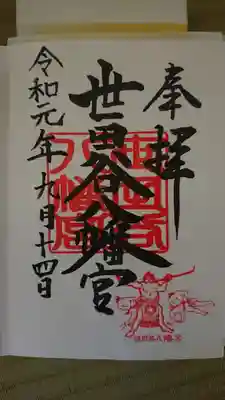 奉拝
世田谷八幡宮
令和元年九月十四日
世田谷
八幡宮